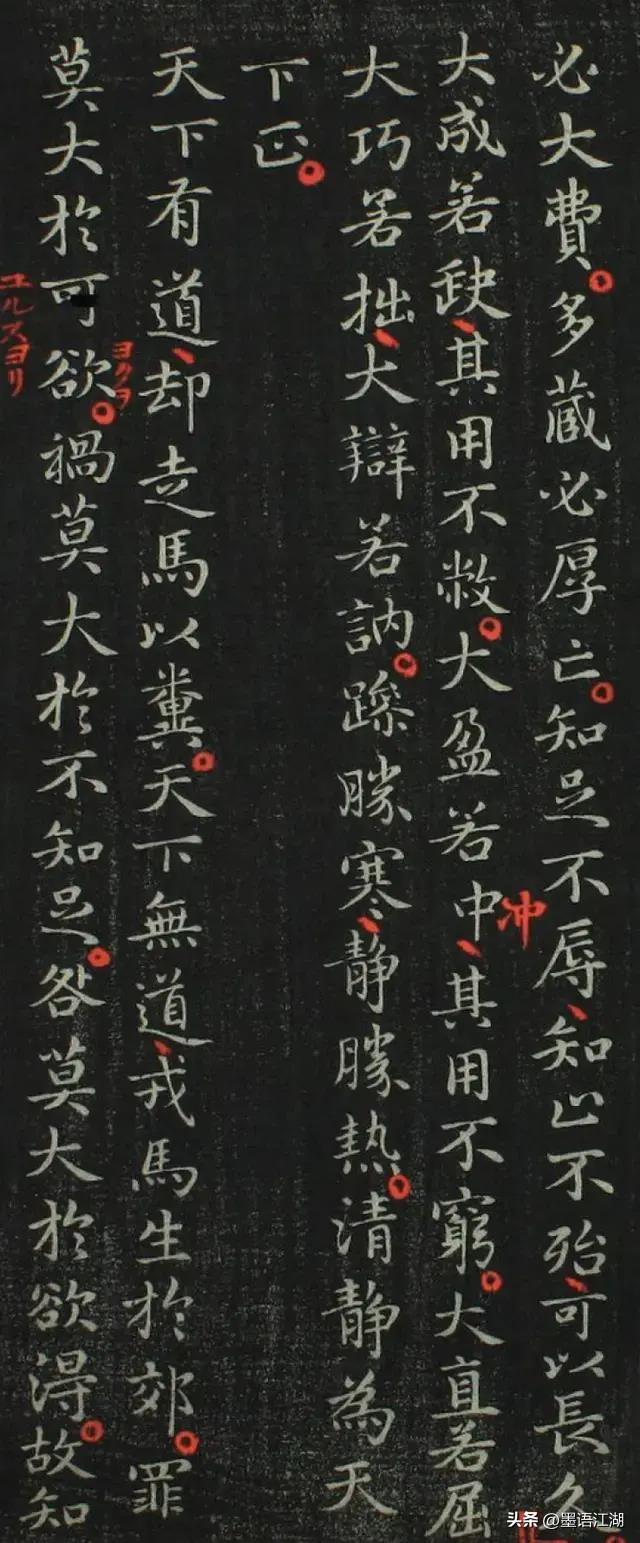 必大費。多蔵必厚亡。知足不辱、知止不殆、可以長久
大成若缺、其用不敝。大盈若中、其用不窮。大直若屈
冲
大巧若拙、大辯若訥。躁勝寒、静勝熱。清静為天
下正。
天下有道、却走馬以糞。天下無道、戎馬生於郊。罪
ヨクヲ
莫大於可欲。禍莫大於不知足。咎莫大於欲得。故知
ユルスヨリ
头条 @墨语江湖